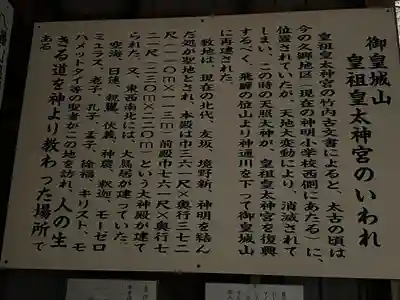 御皇城山
皇祖皇太神宮のいわれ
皇祖皇太神宮の竹内古文書によると、太古の頃は
今の久郷地区(現在の神明小学校西側にあたる)に、
位置されていたが、天地大変動により、消滅されて
しまい、この時の天照大神が、皇祖皇太神宮を復興
するべく、飛騨の位山より神通川を下って御皇城山
に再建された。
敷地は、現在の北代、友坂、境野新、神明を結ん
だ処が聖地とされ、本殿は巾三六一尺×奥行三七二
尺(一一〇m×一一三m)前殿巾七六一尺×奥行七
二一尺(二三〇m×二二〇m)という大神殿が建て
られた。又、東西南北には、大鳥居が建っていた。
空海、日蓮、親鸞、伏羲、神農、釈迦、モーゼロ
ミュラス、老子、孔子、孟子、徐福、キリスト、モ
ハメットタイ等の聖者がこの地を訪れ、人の生
きる道を神より教わった場所で
ある